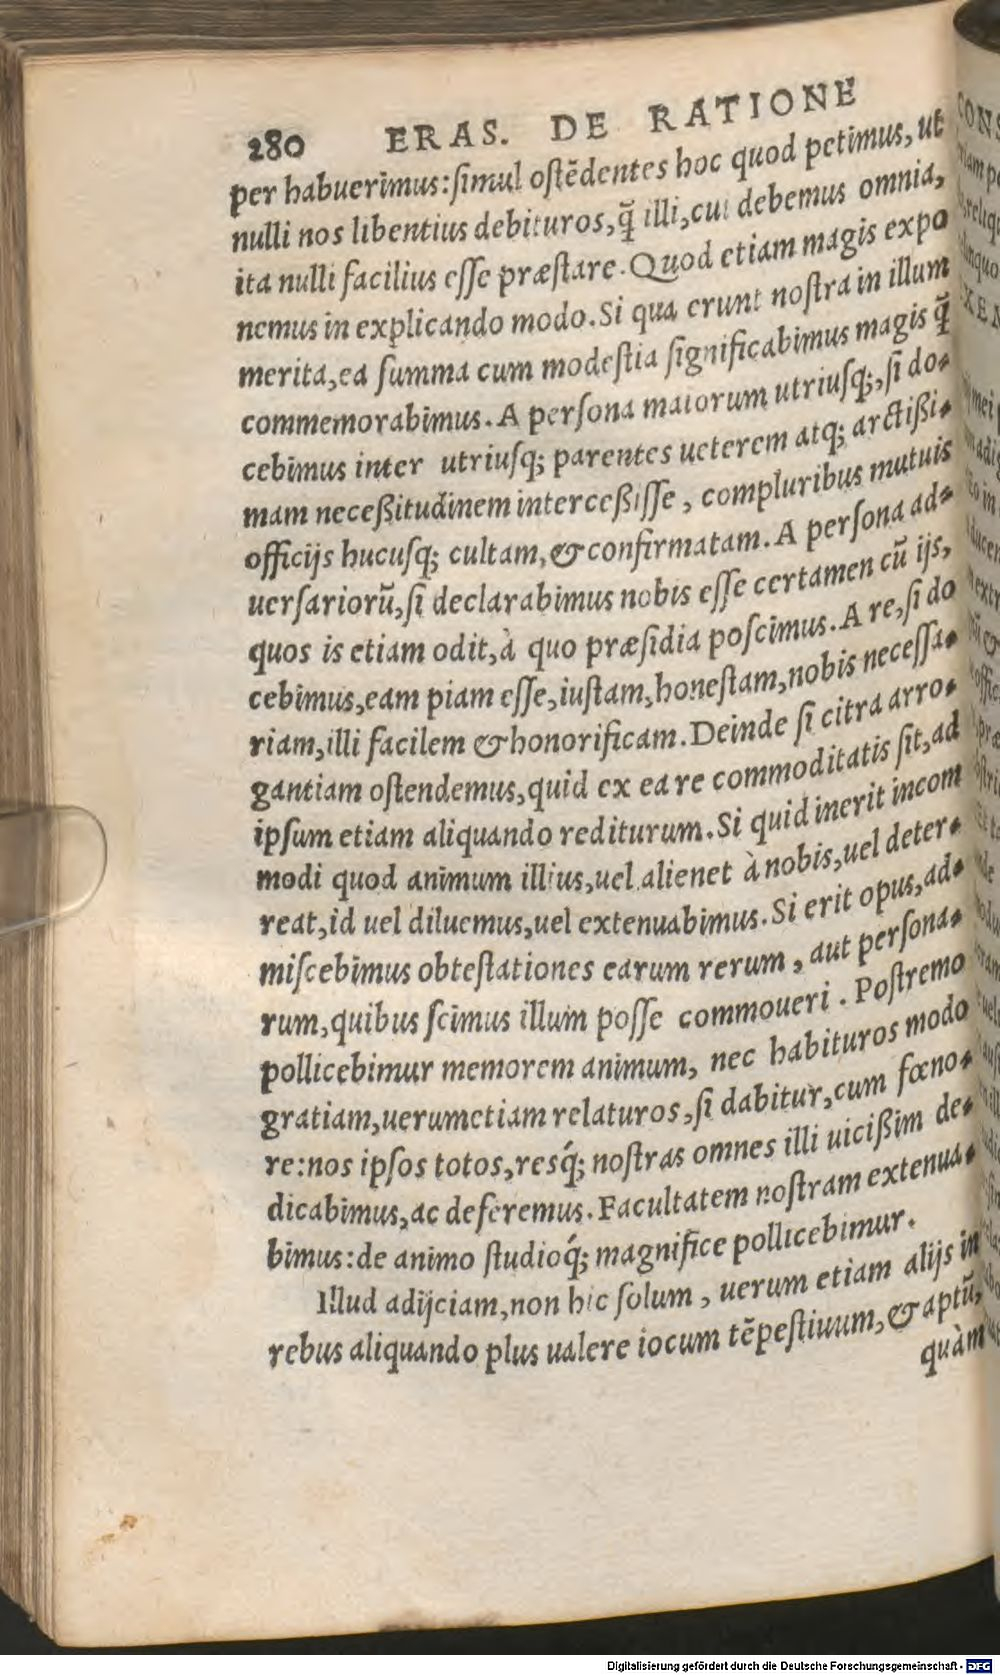 280 ERAS. DE RATIONE
per habuerimus: ſimul oſtēdentes hoc quod petimus, ut
nulli nos libentius debituros, q̃ illi, cui debemus omnia,
ita nulli facilius eſſe præſtare. Quod etiam magis expo
nemus in explicando modo. Si qua erunt noſtra in illum
merita, ea ſumma cum modeſtia ſignificabimus magis q̃
commemorabimus. A perſona maiorum utriuſq;, ſi do⸗
cebimus inter utriuſq; parentes ueterem atq; arctißi⸗
mam neceßitudinem interceßiſſe, compluribus mutuis
officijs hucuſq; cultam, & confirmatam. A perſona ad⸗
uerſariorũ, ſi declarabimus nobis eſſe certamen cũ ijs,
quos is etiam odit, à quo præſidia poſcimus. A re, ſi do
cebimus, eam piam eſſe, iuſtam, honeſtam, nobis neceſſa⸗
riam, illi facilem & honorificam. Deinde ſi citra arro⸗
gantiam oſtendemus, quid ex ea re commoditatis ſit, ad
ipſum etiam aliquando rediturum. Si quid inerit incom
modi quod animum illius, uel alienet à nobis, uel deter⸗
reat, id uel diluemus, uel extenuabimus. Si erit opus, ad⸗
miſcebimus obteſtationes earum rerum, aut perſona⸗
rum, quibus ſcimus illum poſſe commoueri. Poſtremo
pollicebimur memorem animum, nec habituros modo
gratiam, uerumetiam relaturos, ſi dabitur, cum fœno⸗
re: nos ipſos totos, resq́; noſtras omnes illi uicißim de⸗
dicabimus, ac deferemus. Facultatem noſtram extenua⸗
bimus: de animo ſtudioq́; magnifice pollicebimur.
Illud adijciam, non hic ſolum, uerum etiam alijs in
rebus aliquando plus ualere iocum tēpeſtiuum, & aptũ,
quàm
Digitalisierung gefördert durch die Deutsche Forschungsgemeinschaft - DFG